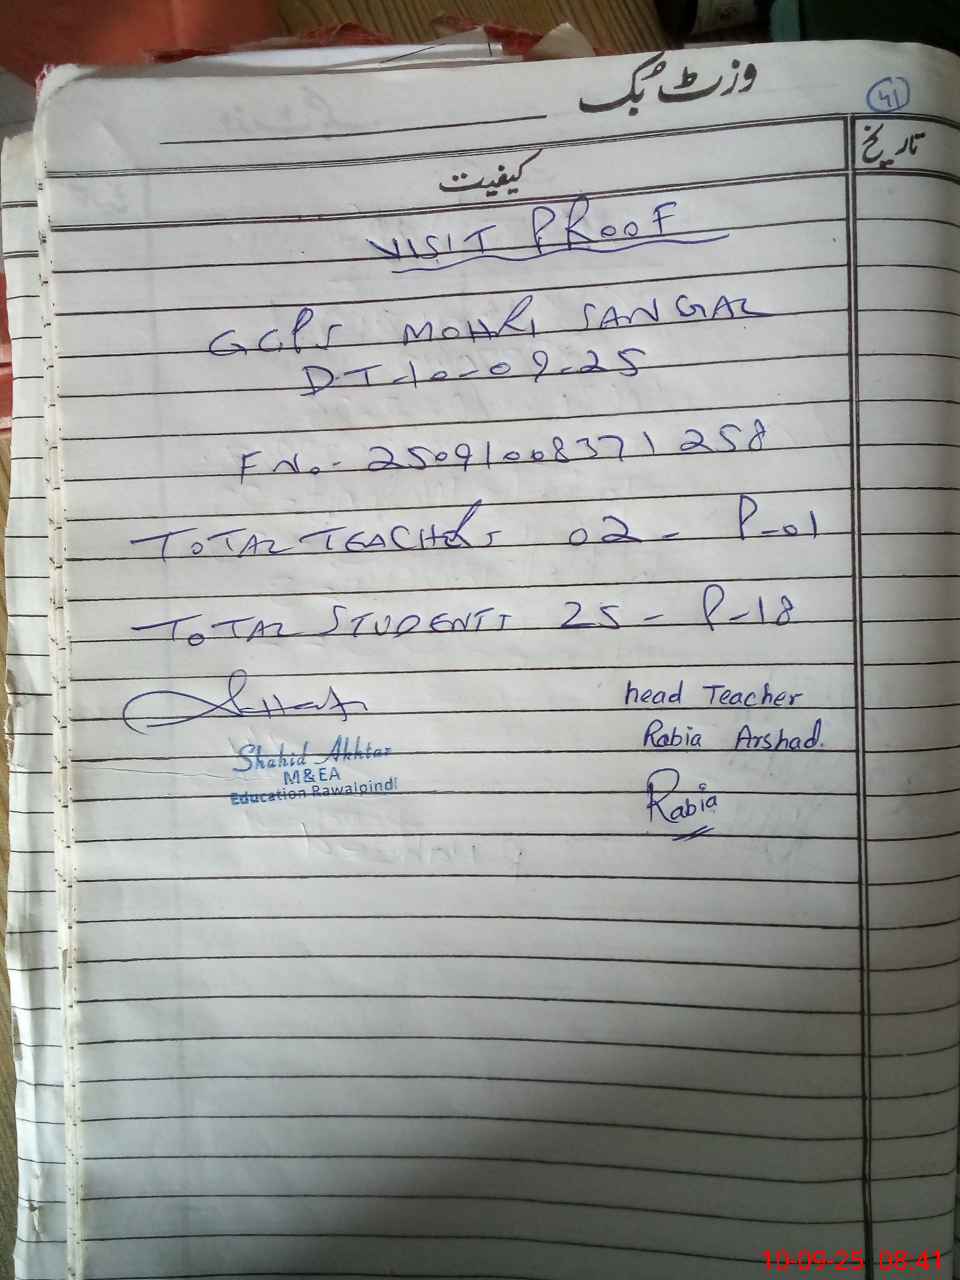 وزٹ بک
41
تاریخ
کیفیت
VISIT PROOF
GGPS MOHRI SANGAL
DT-10-09-25
F No.- 25091008371258
TOTAL TEACHERS 02 - P-01
TOTAL STUDENTS 25 - P-18
head Teacher
Rabia Arshad.
Shahid Akhtar
M&EA
Education Rawalpindi
Rabia
10-09-25 08:41